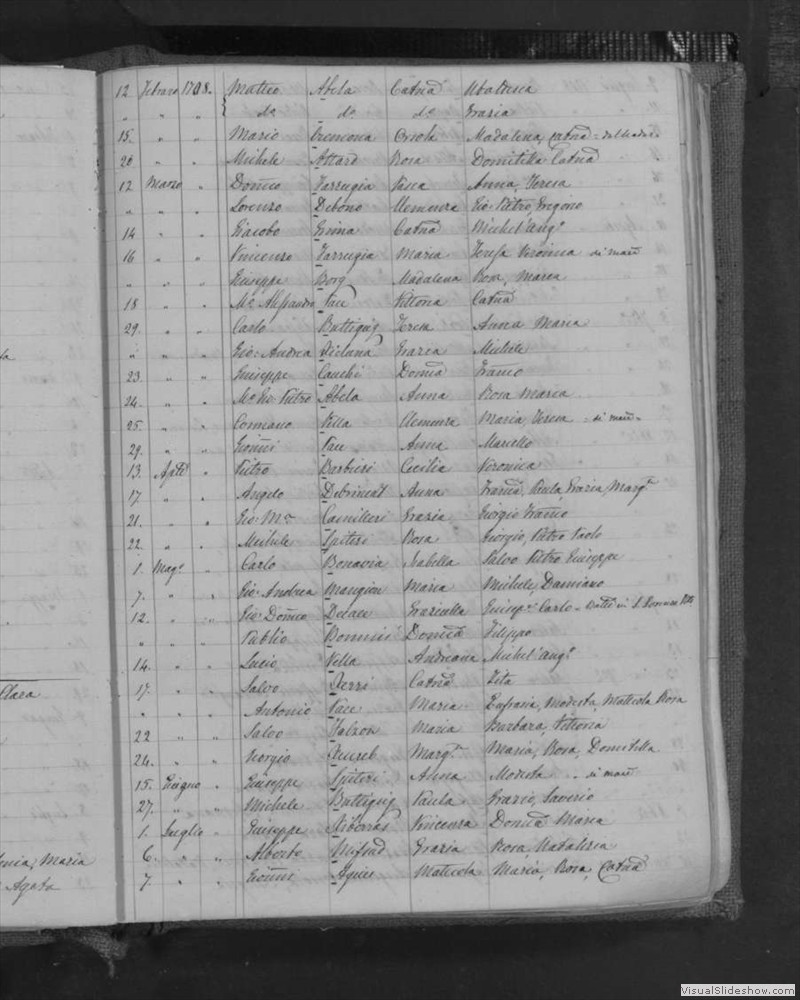 12 Febraro 1708. Matteo Abela Catna Ubaldesca
" " " do do do Grazia
15. " " Mario Cremona Orsola Madalena, Catna
20 " " Michele Attard Rosa Domitilla Catna
12 Marzo " Domco Farrugia Pasca Anna, Teresa
" " " Lorenzo Debono Clemenza Gio: Pietro, Gregorio
14 " " Giacobo Grima Catna Michel'Ango
16 " " Vincenzo Farrugia Maria Teresa Veronica
" " " Giuseppe Borg Madalena Rosa, Marea
18 " " Mo Alessandro Pace Vittoria Catna
29. " " Carlo Buttigieg Teresa Anna Maria
" " " Gio: Andrea Xiclana Grazia Michele
23. " " Giuseppe Cauchi Domca Franco
24. " " Mo Gio Pietro Abela Anna Rosa Maria
25. " " Cosmano Vella Clemenza Maria, Teresa
29. " " Gionni Pace Anna Marcello
13. Aple " Pietro Barbieri Cecilia Veronica
17 " " Angelo Anna Franca, Paula, Grazia, Margta
21. " " Gio: Ma Camilleri Grazia Giorgio Franco
22 " " Michele Spiteri Rosa Giorgio, Pietro Paolo
1. Mago " Carlo Bonavia Isabella Salvo Pietro Giuseppe
7. " " Gio: Andrea Mangion Maria Michele, Damiano
12. " " Gio: Domco Graziulla Giusepe Carlo
" " " Publio Bonnici Domca Filippo
14. " " Lucio Vella Andreana Michel'Ango
17. " " Salvo Xerri Catna Zita
" " " Antonio Pace Maria Eufrasia, Modesta, Matteola Rosa
22 " " Salvo Falzon Maria Barbara, Vittoria
24. " " Giorgio Xuereb Margta Maria, Rosa, Domitilla
15. Giugno " Giuseppe Spiteri Anna Modesta
27. " " Michele Buttigieg Paula Grazio, Saverio
1. Luglio " Giuseppe Xiberras Vincenza Domca Maria
6. " " Alberto Mifsud Grazia Rosa, Natalizia
7. " " Gionni Agius Matteola Maria, Rosa, Catna
Clara
Maria
Agata
VisualSlideshow.com